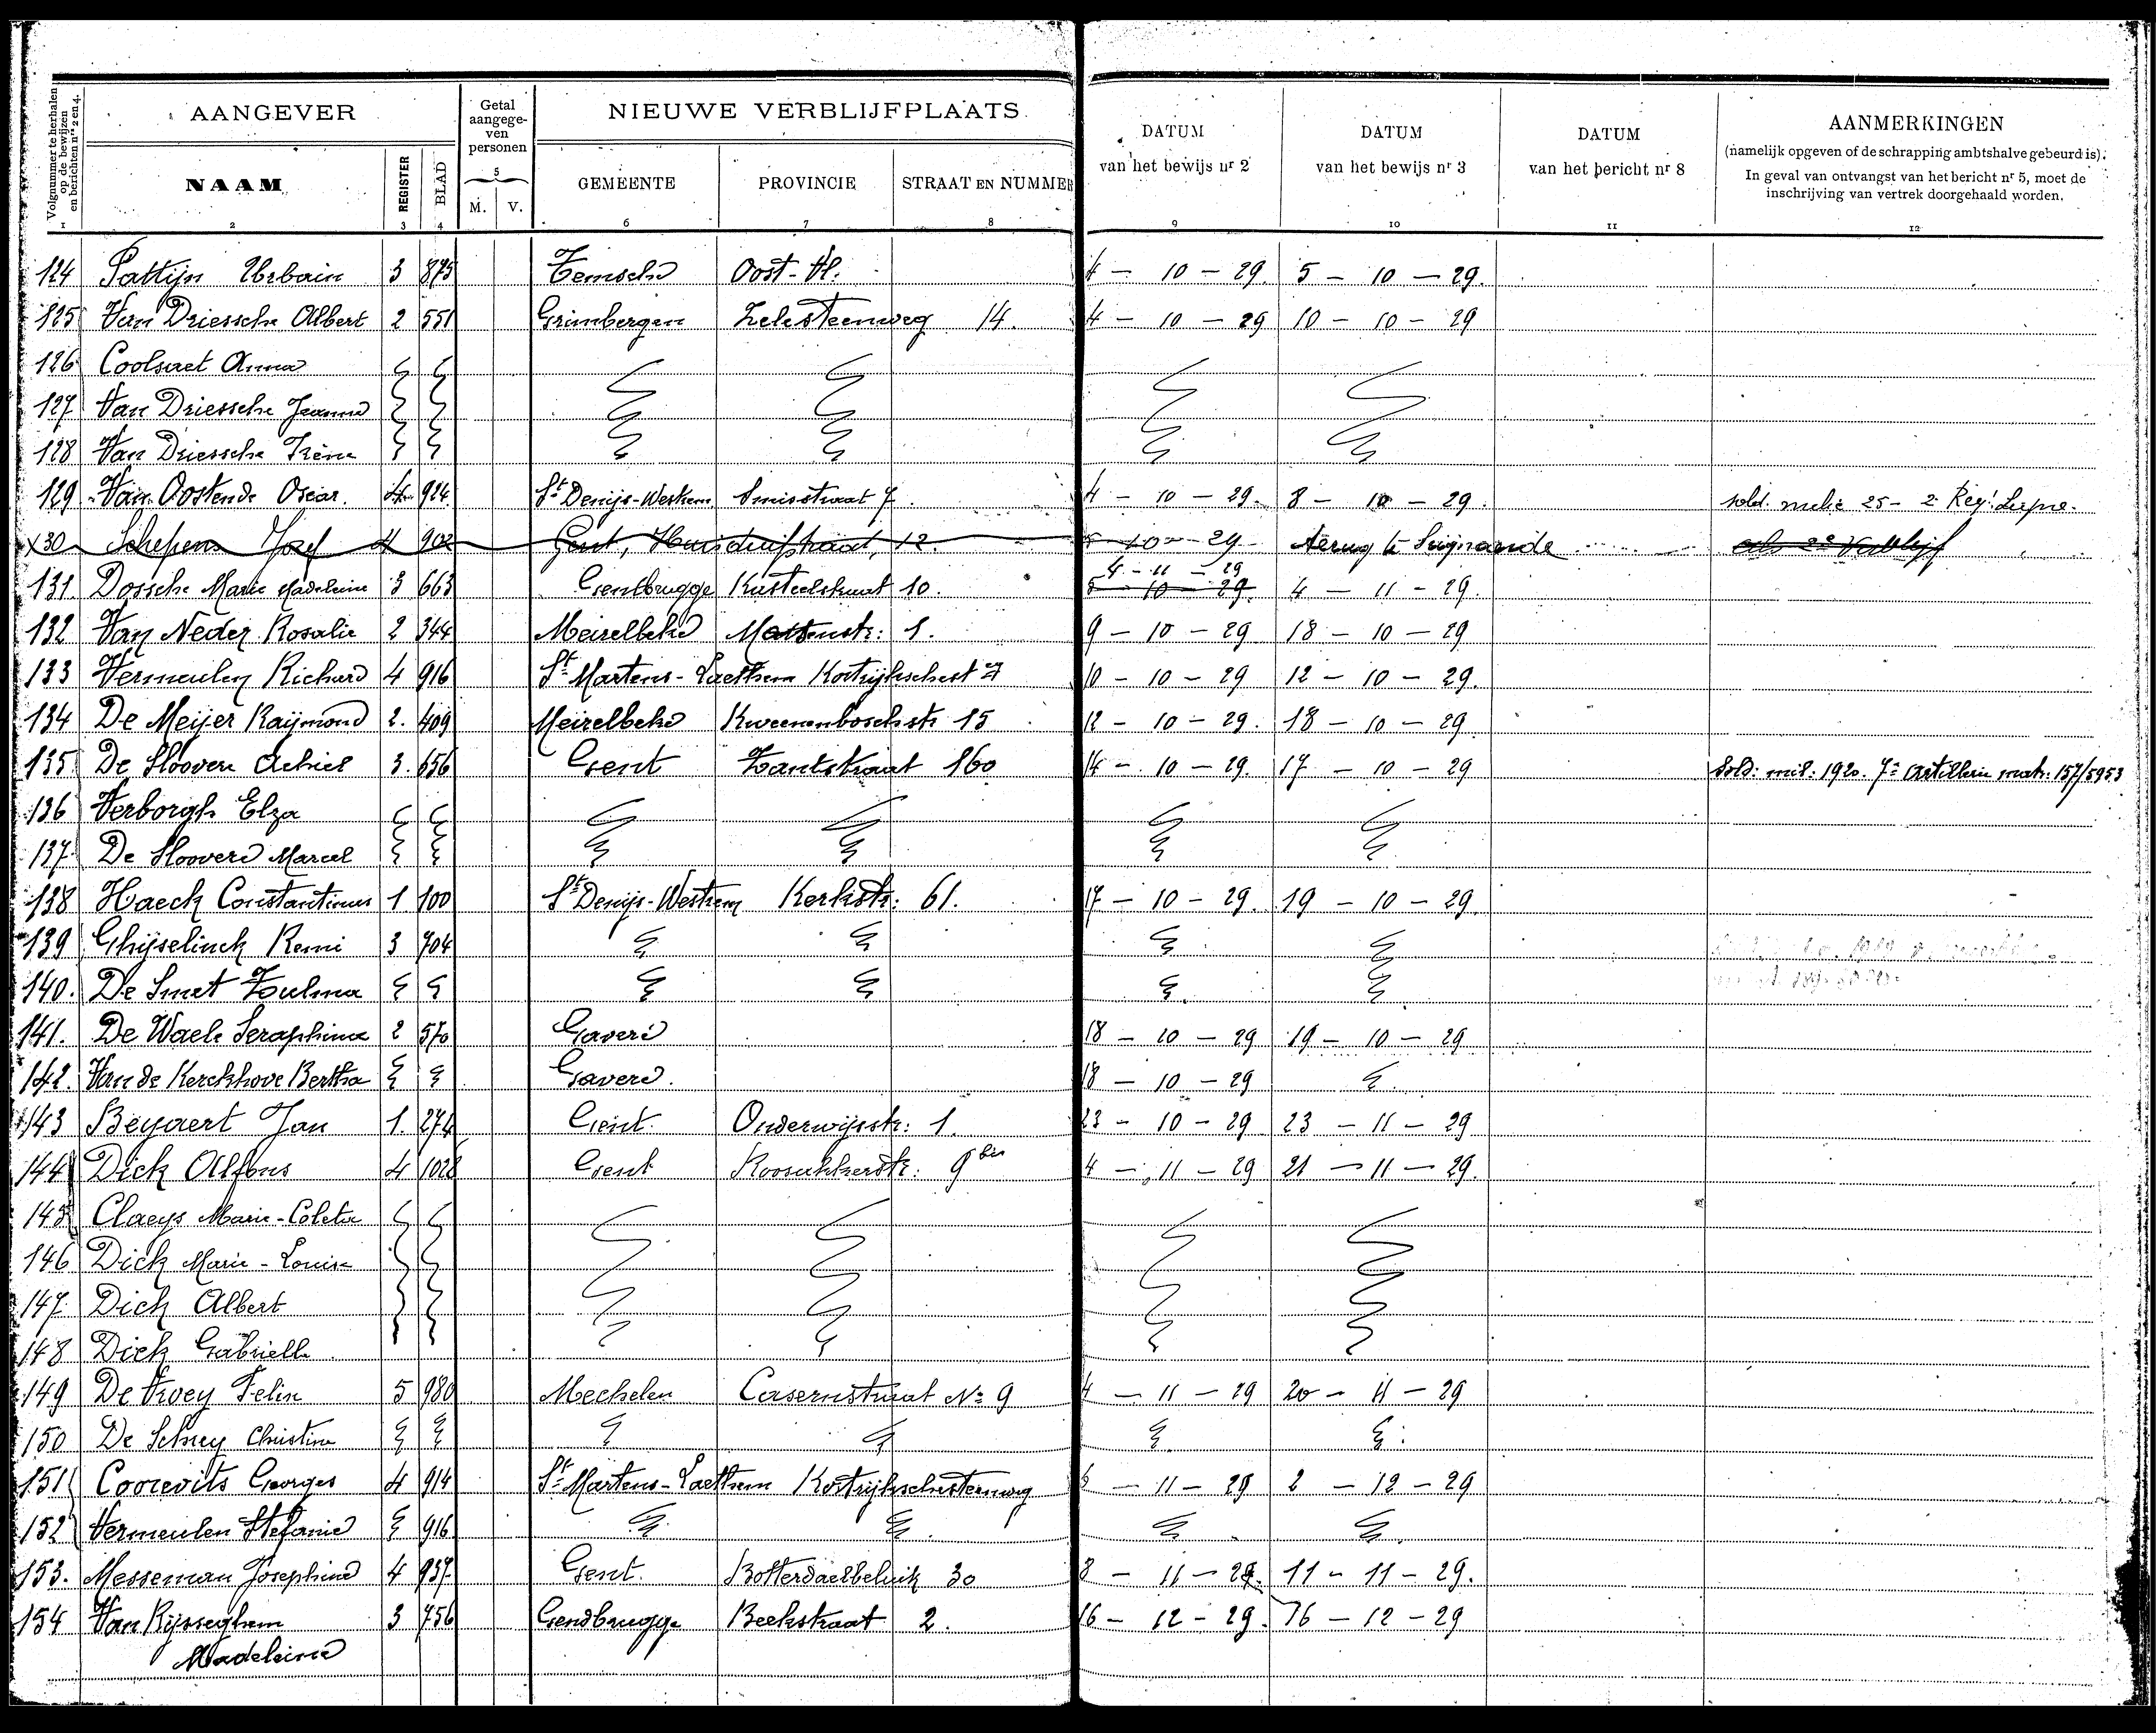 AANGEVER
Getal aangegeven personen
NIEUWE VERBLIJFPLAATS
DATUM van het bewijs nr 2
DATUM van het bewijs nr 3
DATUM van het bericht nr 8
AANMERKINGEN
(namelijk opgeven of de schrapping ambtshalve gebeurd is).
In geval van ontvangst van het bericht nr 5, moet de
inschrijving van vertrek doorgehaald worden.
Volgnummer te herhalen op de bewijzen en berichten nrs 2 en 4.
NAAM REGISTER BLAD M. V. GEMEENTE PROVINCIE STRAAT EN NUMMER
1 2 3 4 5 6 7 8 9 10 11 12
124 Pattijn Urbain 3 875 Temsche Oost-Vl. 4 - 10 - 29. 5 - 10 - 29.
125 Van Driessche Albert 2 551 Grimbergen Zelesteenweg 14. 4 - 10 - 29 10 - 10 - 29
126 Coolsaet Anna
127 Van Driessche Jeanne
128 Van Driessche Irène
129 Van Oostende Oscar. 4 924 St Denijs-Westrem Smisstraat 7. 4 - 10 - 29. 8 - 10 - 29. sold. 25 - 2e Reg!
130 Schepens Jozef 4 902 Gent, 12. 5 - 10 - 29 terug te Seijnaarde als 2e Verblijf
131. Dossche Marie Madeleine 3 663 Gentbrugge Kasteelstraat 10. 5 - 10 - 29. 4 - 11 - 29 4 - 11 - 29.
132 Van Neder Rosalie 2 344 Meirelbeke 1. 9 - 10 - 29 18 - 10 - 29
133 Vermeulen Richard 4 916 St Martens-Laethem Kortrijkschest 7 10 - 10 - 29 12 - 10 - 29.
134 De Meijer Raijmond 2. 409 Meirelbeke Kweenenboschstr 15 12 - 10 - 29. 18 - 10 - 29
135 De Hoovere Achiel 3. 656 Gent Zantstraat 160 14 - 10 - 29. 17 - 10 - 29 Sold: mil: 1920. 7e Artillerie matr: 157/5953
136 Verborgh Elza
137 De Hoovere Marcel
138 Haeck Constantinus 1 100 St Denijs-Westrem Kerkstr: 61. 17 - 10 - 29. 19 - 10 - 29.
139 Ghijselinck Remi 3 704
140. De Smet Zulma
141. De Waele Seraphina 2 570 Gavere 18 - 10 - 29 19 - 10 - 29
142. Van de Kerckhove Bertha Gavere. 18 - 10 - 29
143 Beyaert Jan 1. 274 Gent. Onderwijsstr: 1. 23 - 10 - 29 23 - 11 - 29
144 Dick Alfons 4 1028 Gent 9 bis 4 - 11 - 29 21 - 11 - 29.
145 Claeys Marie-Coleta
146 Dick Marie-Louise
147 Dick Albert
148 Dick Gabrielle
149 De Vroey Felix 5 980 Mechelen Casernstraat No 9 4 - 11 - 29 20 - 11 - 29
150 De Schrey Christine
151 Coorevits Georges 4 914 St Martens-Laethem Kortrijkschesteenweg 6 - 11 - 29 2 - 12 - 29
152 Vermeulen Stefanie 916
153. Messeman Josephine 4 937 Gent. Botterdaelbeluik 30 8 - 11 - 29. 11 - 11 - 29.
154 Van Rijsseghem 3 756 Gendbrugge Beekstraat 2. 16 - 12 - 29. 16 - 12 - 29
Madeleine